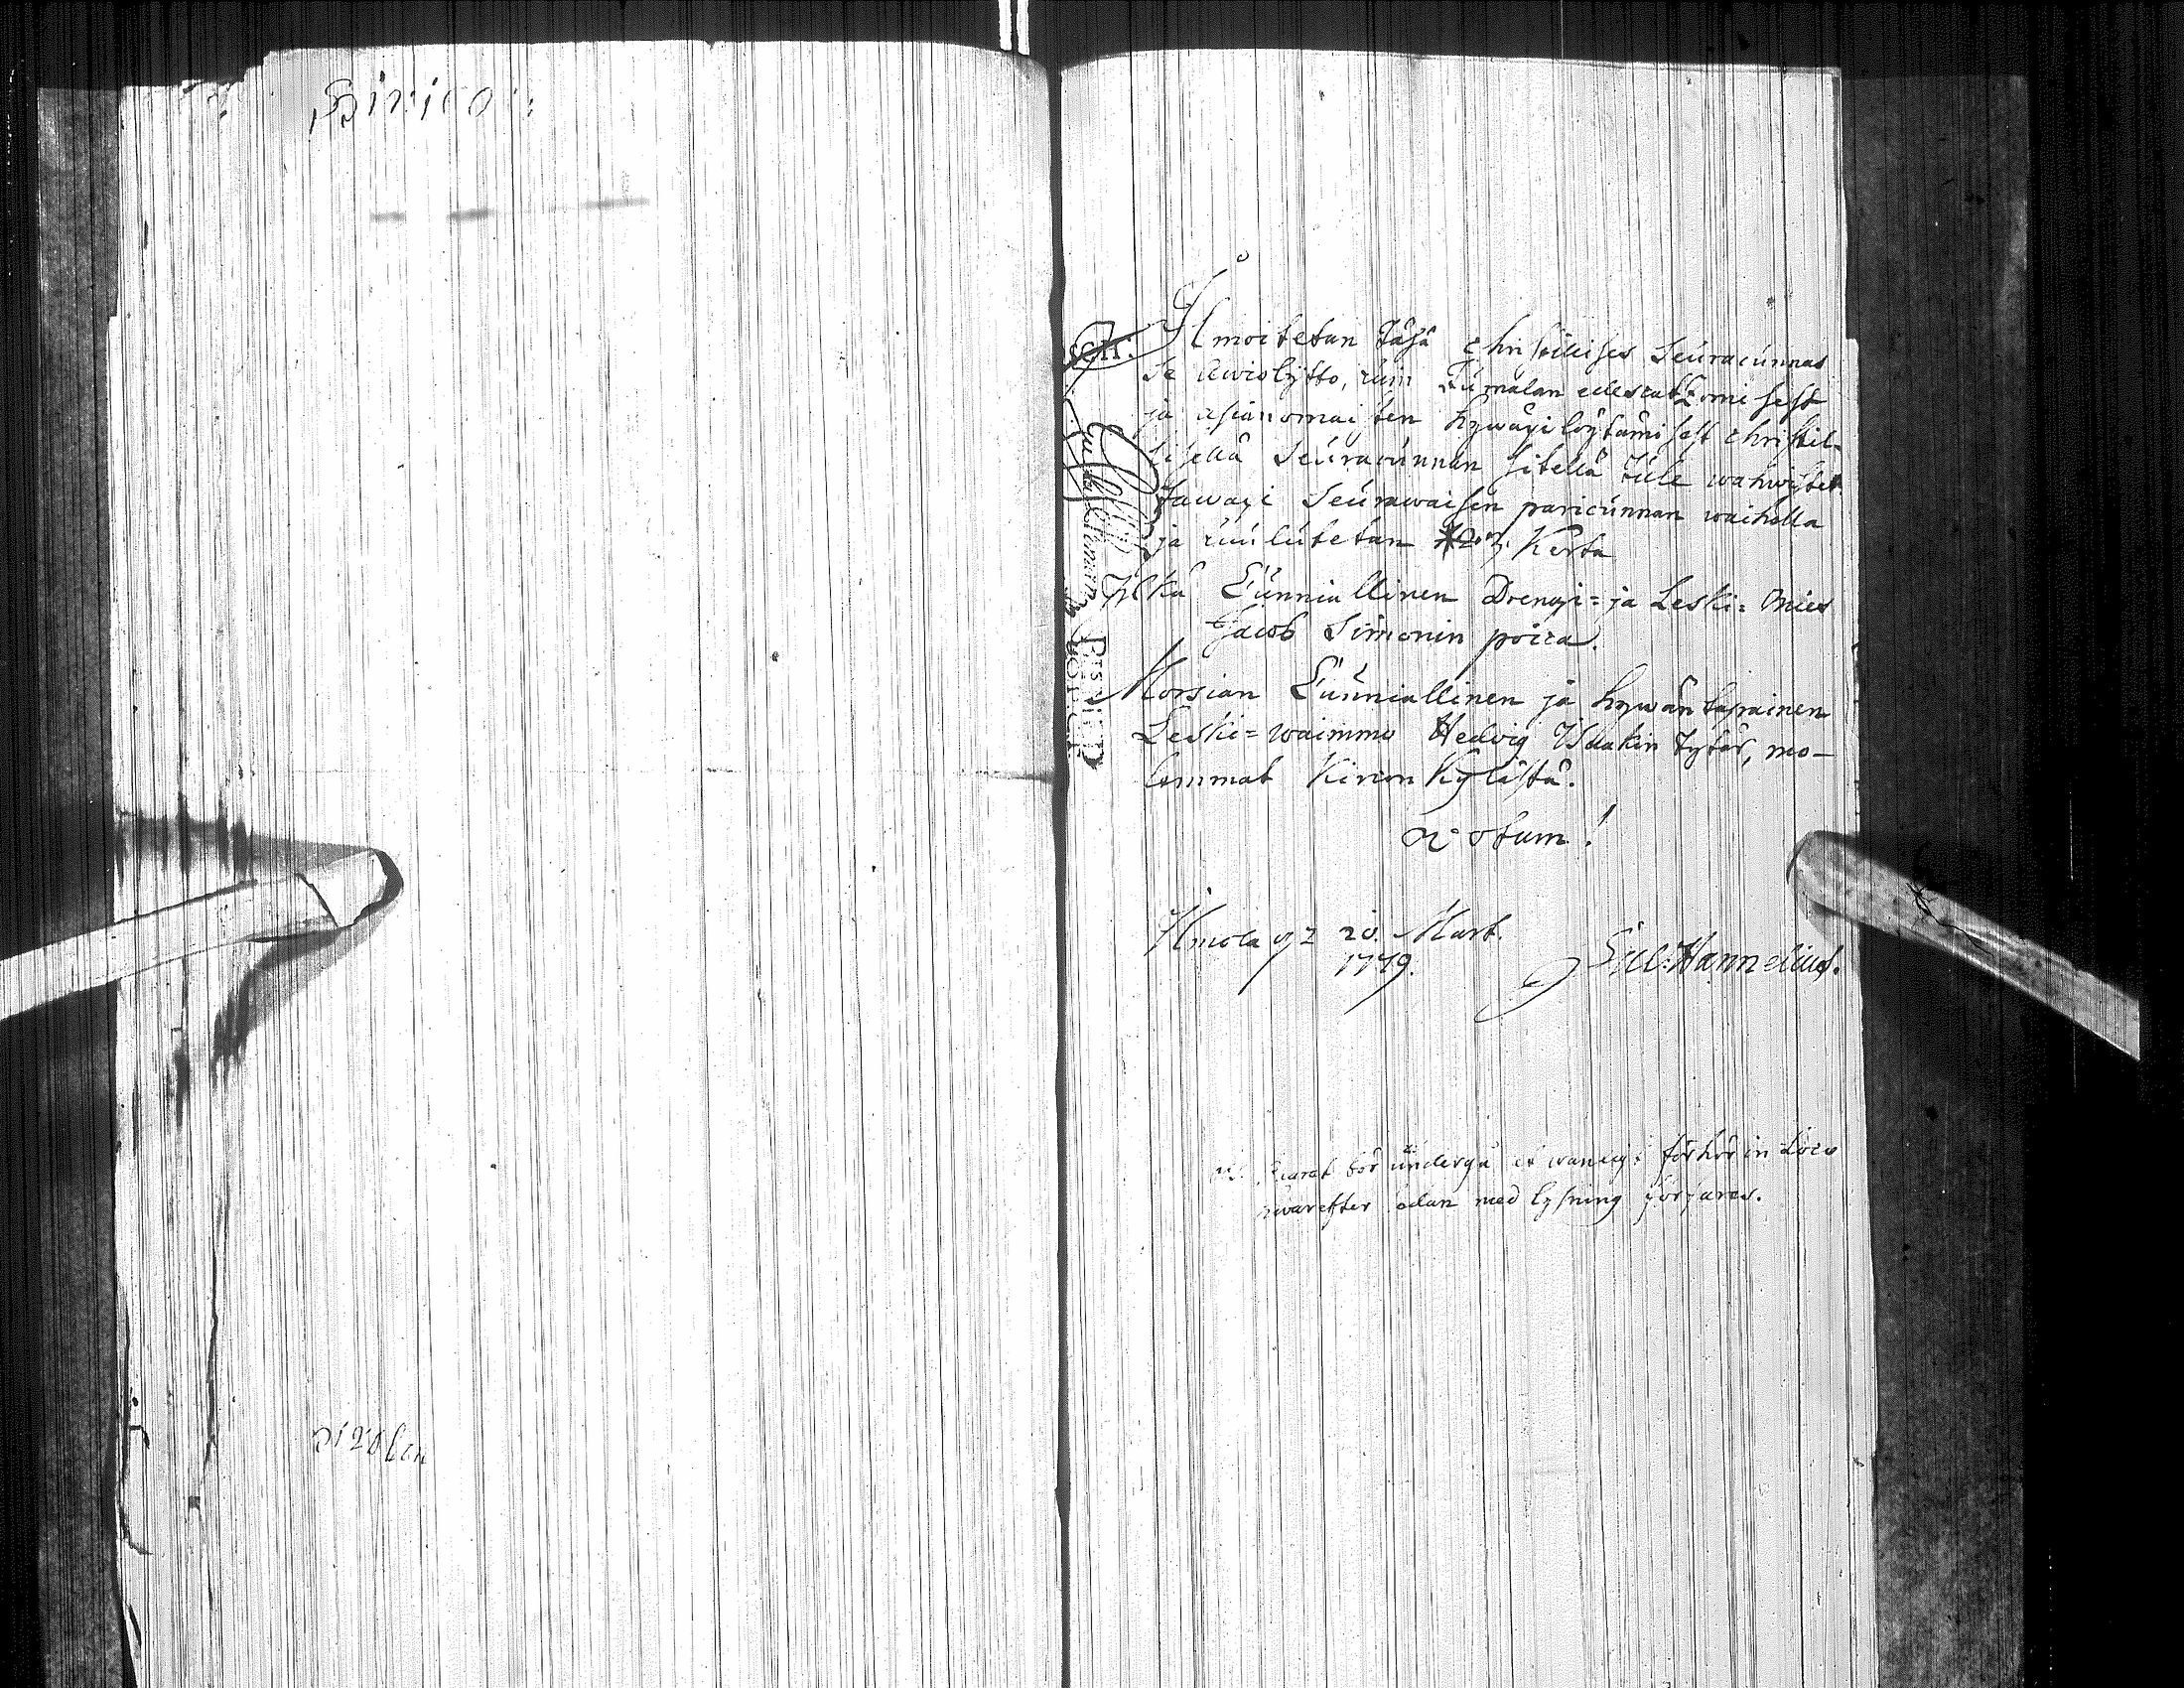 Ilmoitetan Täsä Christillises Seuracunnas
Se Awiolijtto, cuin Jumalan edescatzomisest
ja asianomaisten hywäxi löytämisest christil-
lisellä Seuracunnan sitellä tule wahwistet-
tawaxi Seurawaisen paricunnan waihella
ja cuulutetan Kerta
Ylkä Cunniallinen Drengi= ja Leski= Mies
Jacob Simonin poica.
Morsian Cunniallinen ja hywäntapainen
Leski= waimmo Hedvig Isaakin tytär, mo-
lemmat Kircon Kylästä.
Notum!
Ilmola 20. Mart.
1779.
Hannelius.
Paret bör undergå et förhör in Loco
hwarefter sedan med lysning förfares.